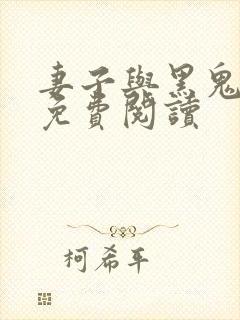 妻子與黑鬼
免費閱讀
柯希平